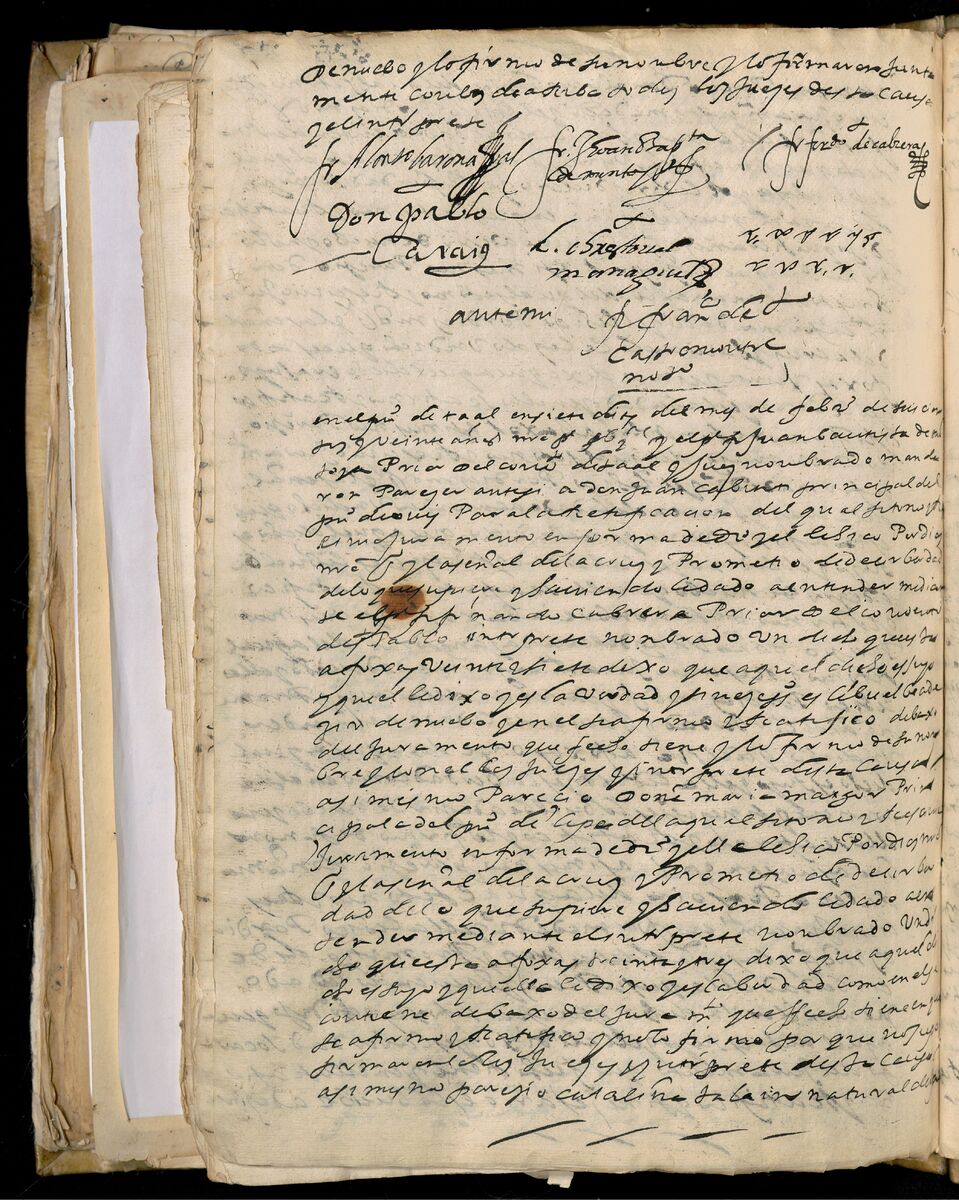 de nuebo y lo firmo de su nombre y lo firmaron junta
mente con los de atriba todos los juezes desta causa
y el interprete
fr Alonso barona fr. Juan Bapta fr ferdo de cabrera
de montoya
Don pablo
Caraig L. christoual
managuit
ante mi fr franco de
Castromonte
noto
en el puo de taal en siete dias del mes de febro de seis cien
tos y veinte años nro pe y el pe fr Juan bautista de mon
toya Prior del conuo de taal y juez nombrado manda
ron Pareçer ante si a don Juan cabinti principal del
puo de Para la Retificacion del qual se tomo y
Resiuio juramento en forma de dro y el le hiço Por dios
nro sr y la señal de la cruz y Prometio de decir berdad
de lo que supiere y hauiendole dado a entender median
te el pe fr fernando Cabrera Prior del conuento
de S Pablo interprete nombrado un dicho que esta
a foxas veinte y siete dixo que aquel dicho es suyo
y que el le dixo y es la verdad y si neçesso es el buelbe a de
zir de nuebo y en el se afirmo y Ratifico debaxo
del juramento que fecho tiene y lo firmo de su nom
bre y con el los juezes y interprete desta causa
asi mismo Parecio doña maria Prin
cipala del puo de lipa de la qual se tomo y Resiuio
juramento en forma de dro y ella le hiço Por dios nro
sr y la señal de la cruz y Prometio de decir ber
dad de lo que supiere y hauiendole dado a en
tender mediante el interprete nombrado un di
cho que esta a foxas treinta y tres dixo que aquel di
cho es suyo y que ella le dixo y es la berdad como en el se
contiene debaxo del juramto que fecho tiene en que
se afirmo y Ratifico y no lo firmo porque no supo
firmaronlo los juezes y interprete desta causa
asi mismo pareçio catalina natural de